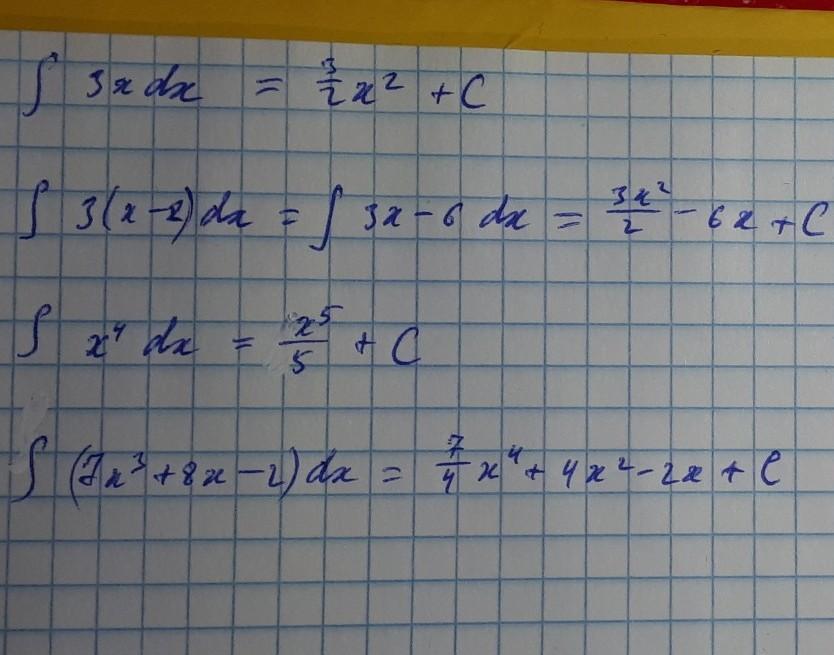 ∫ 3x dx = 3/2 x² + C
∫ 3(x-2)dx = ∫ 3x - 6 dx = 3x²/2 - 6x + C
∫ x⁴ dx = x⁵/5 + C
∫ (7x³+8x-2)dx = 7/4 x⁴ + 4x² - 2x + C